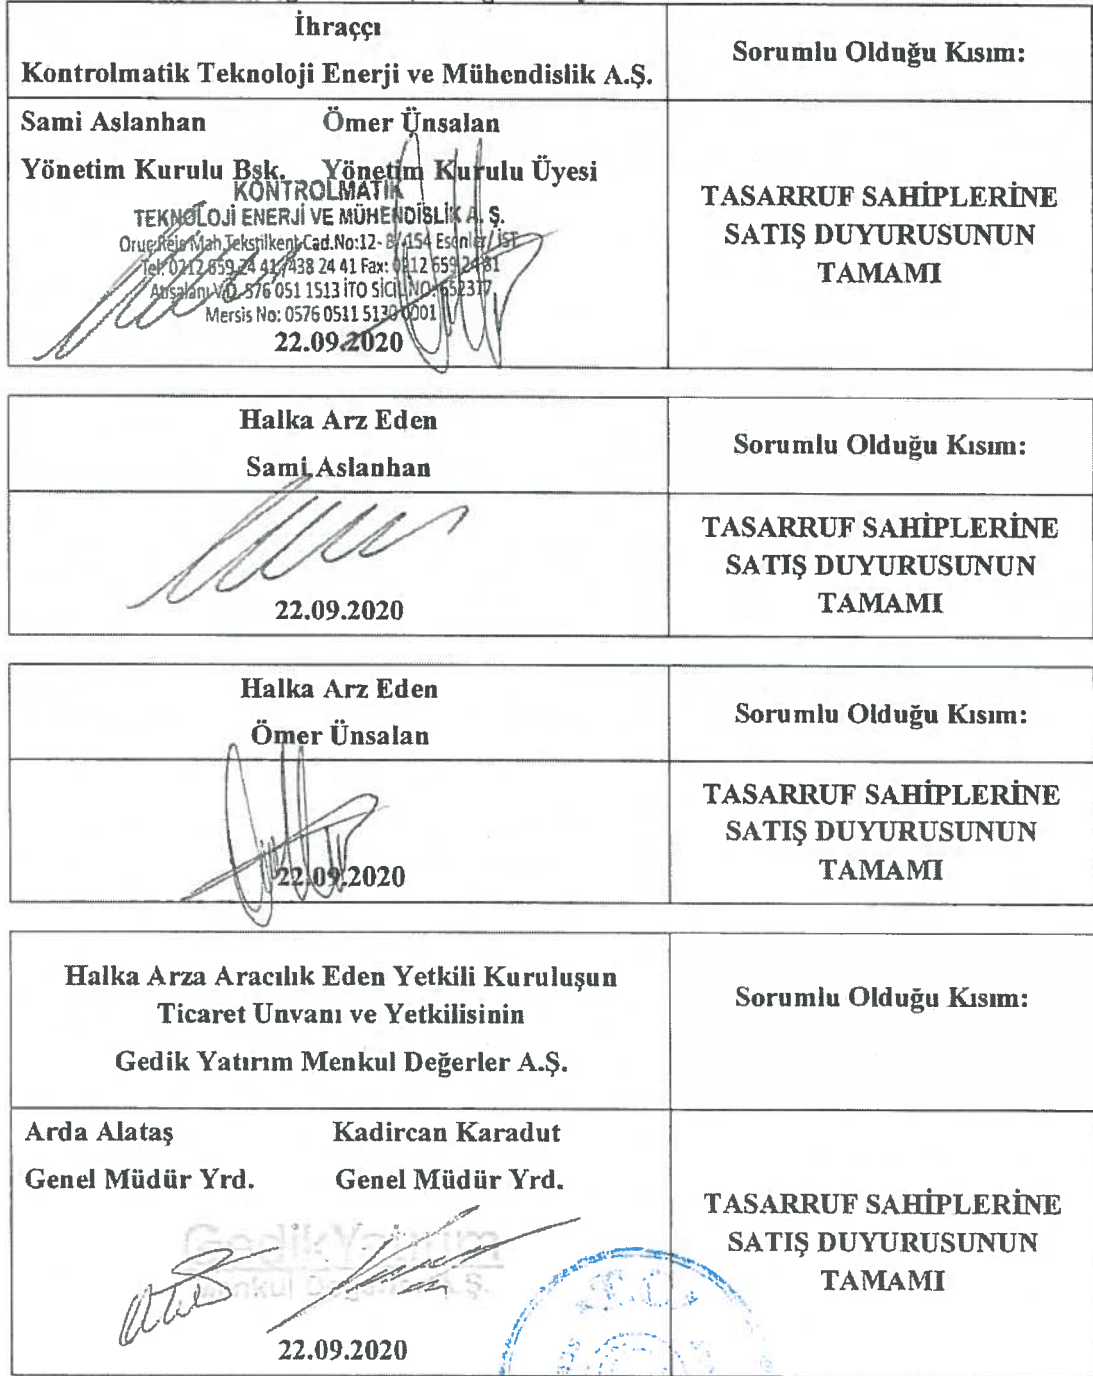 İhraççı
Kontrolmatik Teknoloji Enerji ve Mühendislik A.Ş.
Sorumlu Olduğu Kısım:
Sami Aslanhan Ömer Ünsalan
Yönetim Kurulu Bşk. Yönetim Kurulu Üyesi
KONTROLMATİK
TEKNOLOJİ ENERJİ VE MÜHENDİSLİK A. Ş.
Oruç Reis Mah. Tekstilkent Cad. No:12- B/154 Esenler/ İST
Tel: 0212 659 24 41 / 438 24 41 Fax: 0212 659 24 81
Atışalanı V.D. 576 051 1513 İTO SİCİL NO: 652317
Mersis No: 0576 0511 5130 0001
22.09.2020
TASARRUF SAHİPLERİNE
SATIŞ DUYURUSUNUN
TAMAMI
Halka Arz Eden
Sami Aslanhan
Sorumlu Olduğu Kısım:
22.09.2020
TASARRUF SAHİPLERİNE
SATIŞ DUYURUSUNUN
TAMAMI
Halka Arz Eden
Ömer Ünsalan
Sorumlu Olduğu Kısım:
22.09.2020
TASARRUF SAHİPLERİNE
SATIŞ DUYURUSUNUN
TAMAMI
Halka Arza Aracılık Eden Yetkili Kuruluşun
Ticaret Unvanı ve Yetkilisinin
Gedik Yatırım Menkul Değerler A.Ş.
Sorumlu Olduğu Kısım:
Arda Alataş Kadircan Karadut
Genel Müdür Yrd. Genel Müdür Yrd.
GedikYatırım
Menkul Değerler A.Ş.
22.09.2020
TASARRUF SAHİPLERİNE
SATIŞ DUYURUSUNUN
TAMAMI
T.C.